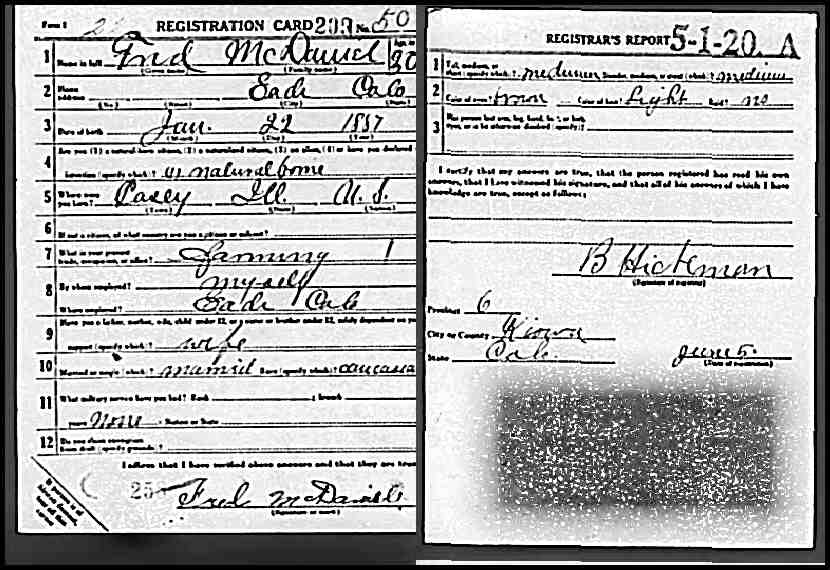 Form 1 REGISTRATION CARD No. 50
1 Name in full Fred McDaniel Age, in yrs. 30
(Given name) (Family name)
2 Home address Eads Colo
(No.) (Street) (City) (State)
3 Date of birth Jan. 22 1887
(Month) (Day) (Year)
4 Are you (1) a natural-born citizen, (2) a naturalized citizen, (3) an alien, (4) or have you declared
intention (specify which)? natural borne
5 Where were you born? Casey Ill. U.S.
(Town) (State) (Nation)
6 If not a citizen, of what country are you a citizen or subject?
7 What is your present trade, occupation, or office? Farming
8 By whom employed? myself
Where employed? Eads Colo
9 Have you a father, mother, wife, child under 12, or a sister or brother under 12, solely dependent on you
support (specify which)? wife
10 Married or single (which)? married Race (specify which)? caucasia
11 What military service have you had? Rank ; branch
years None ; Nation or State
12 Do you claim exemption from draft (specify grounds)?
I affirm that I have verified above answers and that they are true
Fred McDaniel
(Signature or mark)
REGISTRAR'S REPORT 5-1-20. A
1 Tall, medium, or short (specify which)? medium Slender, medium, or stout (which)? medium
2 Color of eyes? brown Color of hair? Light Bald? no
3 Has person lost arm, leg, hand, foot, or both eyes, or is he otherwise disabled (specify)?
I certify that my answers are true, that the person registered has read his own
answers, that I have witnessed his signature, and that all of his answers of which I have
knowledge are true, except as follows:
B Hickman
(Signature of registrar)
Precinct 6
City or County Kiowa
State Colo. June 5.
(Date of registration)